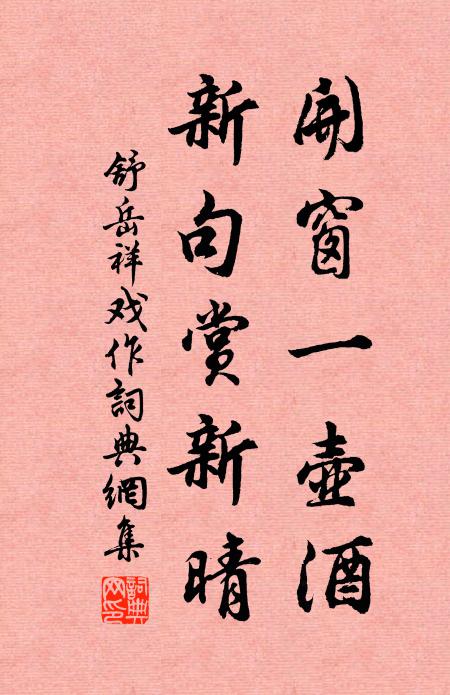 開窗一壺酒
新句賞新晴
舒岳祥戏作詞典網集
詞典
网印